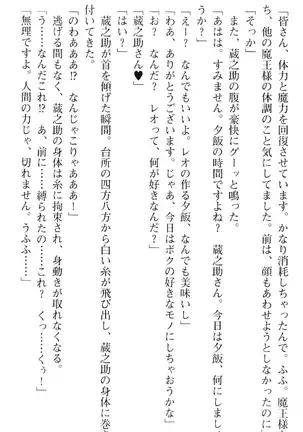 「皆さん、体力と魔力を回復させています。かなり消耗してましたから。ふふ。魔王様た
ち、他の魔王様の体調のこと気にしてました。前は、顔もあわせようとしなかったのに」
「そっか」
また、蔵之助の腹が豪快にグーッと鳴った。
「あはは。すみません。夕飯の時間ですよね？　蔵之助さん。今日は夕飯、何にしましょ
うか？」
「えー？　なんでもいいよ。レオの作る夕飯、なんでも美味いし」
「わあ、ありがとうございます。じゃあ、今日はボクの好きなモノにしちゃおうかな」
「へえー。レオって、何が好きなんだ？」
「蔵之助さん♥」
「はい？」
蔵之助が首を傾げた瞬間。台所の四方八方から白い糸が飛び出し、蔵之助の身体に巻き
付いてきた。
「のわぁぁぁぁ!?　なんじゃこりゃあああ！」
逃げる間もなく、蔵之助の身体は糸に拘束され、身動きが取れなくなる。
「う……なんだこれ!?　あ、前に……縛られたの……これ？　くっ……くぅ！」
「無理ですよ。人間の力じゃ、切れません。うふふ……」